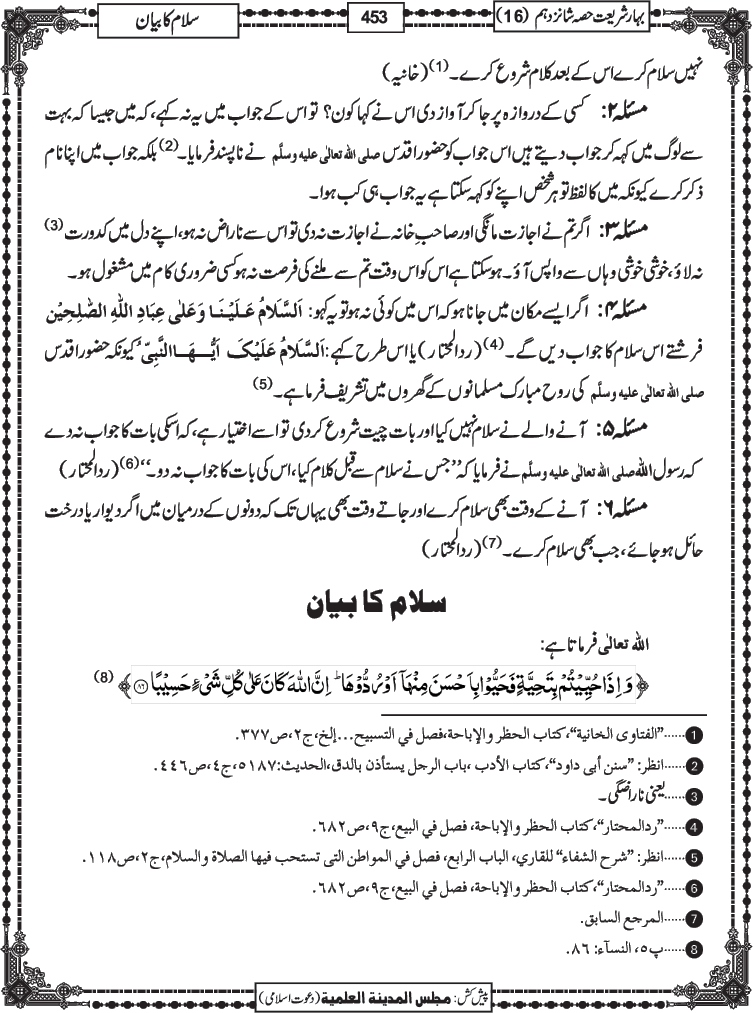 بہارِ شریعت حصہ شانزدہم (16)
453
سلام کا بیان
نہیں سلام کرے اس کے بعد کلام شروع کرے۔(1) (خانیہ)
مسئلہ ۲: کسی کے دروازہ پر جا کر آواز دی اس نے کہا کون؟ تو اس کے جواب میں یہ نہ کہے، کہ میں جیسا کہ بہت
سے لوگ میں کہہ کر جواب دیتے ہیں اس جواب کو حضور اقدس صلی اللہ تعالٰی علیہ وسلَّم نے ناپسند فرمایا۔(2) بلکہ جواب میں اپنا نام
ذکر کرے کیونکہ میں کا لفظ تو ہر شخص اپنے کو کہہ سکتا ہے یہ جواب ہی کب ہوا۔
مسئلہ ۳: اگر تم نے اجازت مانگی اور صاحبِ خانہ نے اجازت نہ دی تو اس سے ناراض نہ ہو، اپنے دل میں کدورت(3)
نہ لاؤ، خوشی خوشی وہاں سے واپس آؤ۔ ہو سکتا ہے اس کو اس وقت تم سے ملنے کی فرصت نہ ہو کسی ضروری کام میں مشغول ہو۔
مسئلہ ۴: اگر ایسے مکان میں جانا ہو کہ اس میں کوئی نہ ہو تو یہ کہو: اَلسَّلَامُ عَلَیْنَا وَعَلٰی عِبَادِ اللّٰہِ الصّٰلِحِیْنَ
فرشتے اس سلام کا جواب دیں گے۔(4) (ردالمحتار) یا اس طرح کہے: اَلسَّلَامُ عَلَیْکَ اَیُّھَا النَّبِیُّ کیونکہ حضور اقدس
صلی اللہ تعالٰی علیہ وسلَّم کی روح مبارک مسلمانوں کے گھروں میں تشریف فرما ہے۔(5)
مسئلہ ۵: آنے والے نے سلام نہیں کیا اور بات چیت شروع کر دی تو اسے اختیار ہے، کہ اسکی بات کا جواب نہ دے
کہ رسول اللہ صلی اللہ تعالٰی علیہ وسلَّم نے فرمایا کہ ’’جس نے سلام سے قبل کلام کیا، اس کی بات کا جواب نہ دو۔‘‘(6) (ردالمحتار)
مسئلہ ۶: آنے کے وقت بھی سلام کرے اور جاتے وقت بھی یہاں تک کہ دونوں کے درمیان میں اگر دیوار یا درخت
حائل ہو جائے، جب بھی سلام کرے۔(7) (ردالمحتار)
سلام کا بیان
اللہ تعالٰی فرماتا ہے:
﴿ وَ اِذَا حُیِّیْتُمْ بِتَحِیَّةٍ فَحَیُّوْا بِاَحْسَنَ مِنْهَاۤ اَوْ رُدُّوْهَا ؕ اِنَّ اللّٰهَ كَانَ عَلٰى كُلِّ شَیْءٍ حَسِیْبًا ﴿۸۶﴾ ﴾ (8)
1 ......’’الفتاوی الخانیة‘‘، کتاب الحظر والإباحة، فصل في التسبیح...إلخ، ج۲، ص۳۷۷.
2 ......انظر: ’’سنن أبی داود‘‘، کتاب الأدب، باب الرجل یستأذن بالدق، الحدیث: ۵۱۸۷، ج۴، ص۴۴۶.
3 ......یعنی ناراضگی۔
4 ......’’ردالمحتار‘‘، کتاب الحظر والإباحة، فصل في البیع، ج۹، ص۶۸۲.
5 ......انظر: ’’شرح الشفاء‘‘ للقاري، الباب الرابع، فصل في المواطن التی تستحب فیها الصلاة والسلام، ج۲، ص۱۱۸.
6 ......’’ردالمحتار‘‘، کتاب الحظر والإباحة، فصل في البیع، ج۹، ص۶۸۲.
7 ......المرجع السابق.
8 ......پ۵، النسآء: ۸۶.
پیش کش: مجلس المدینة العلمیة (دعوتِ اسلامی)